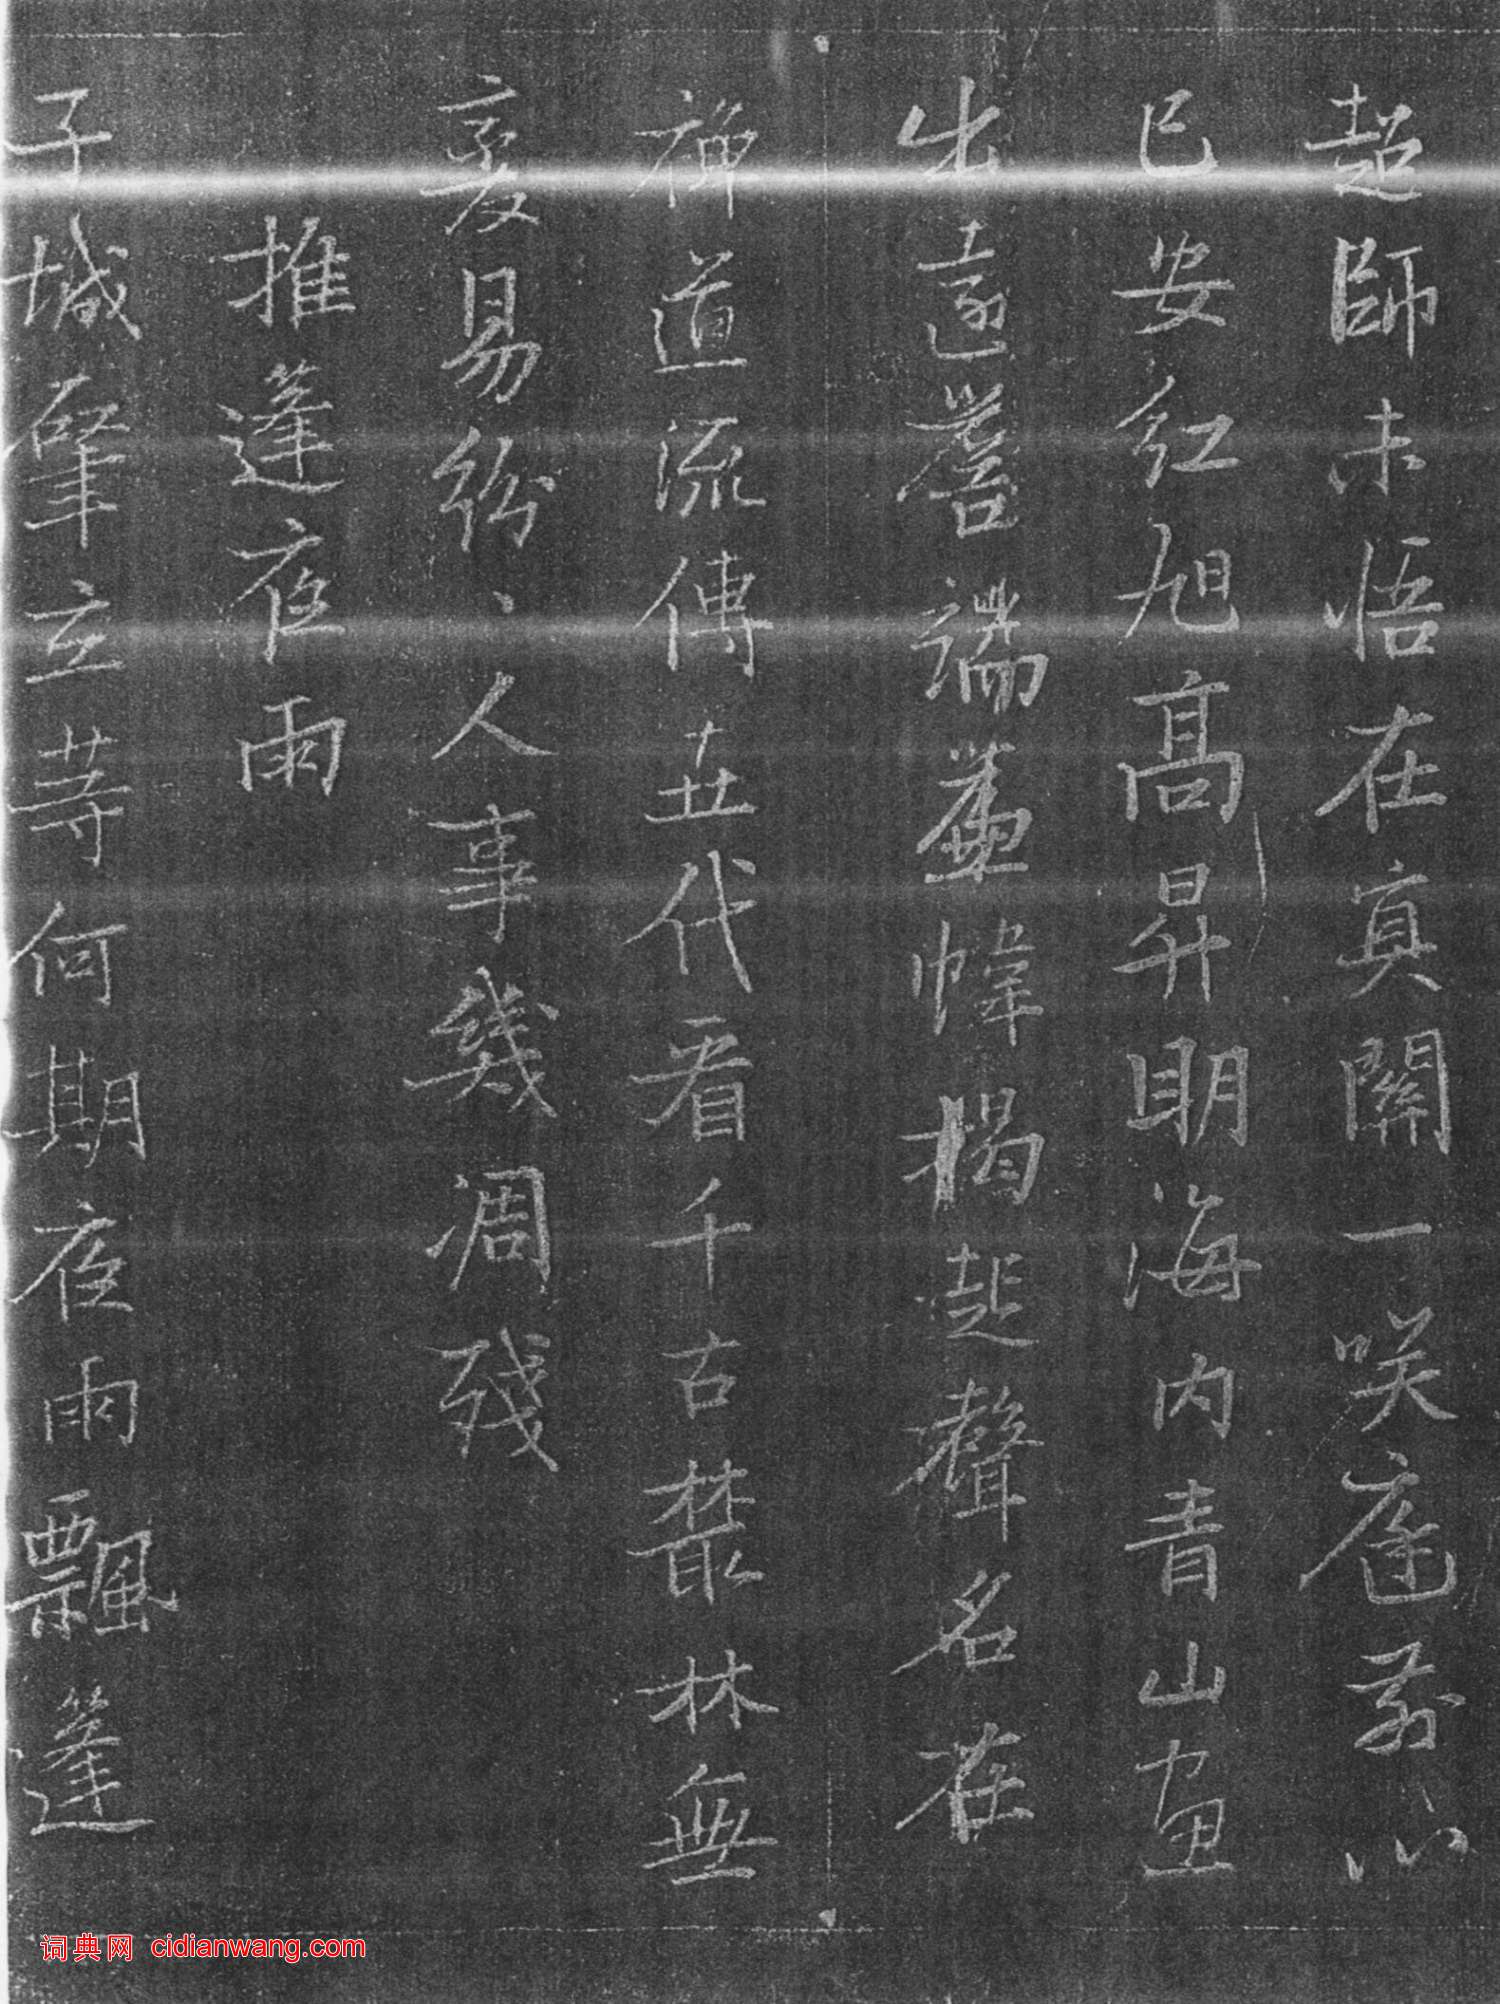 超師未悟在真關一咲庭前心
已安紅旭高昇明海內青山畫
出遠簷端簾幃揭起聲名在
禪道流傳五代看千古叢林無
變易紛〻人事幾凋殘
推篷夜雨
子城肇立等何期夜雨飄篷
词典网 cidianwang.com